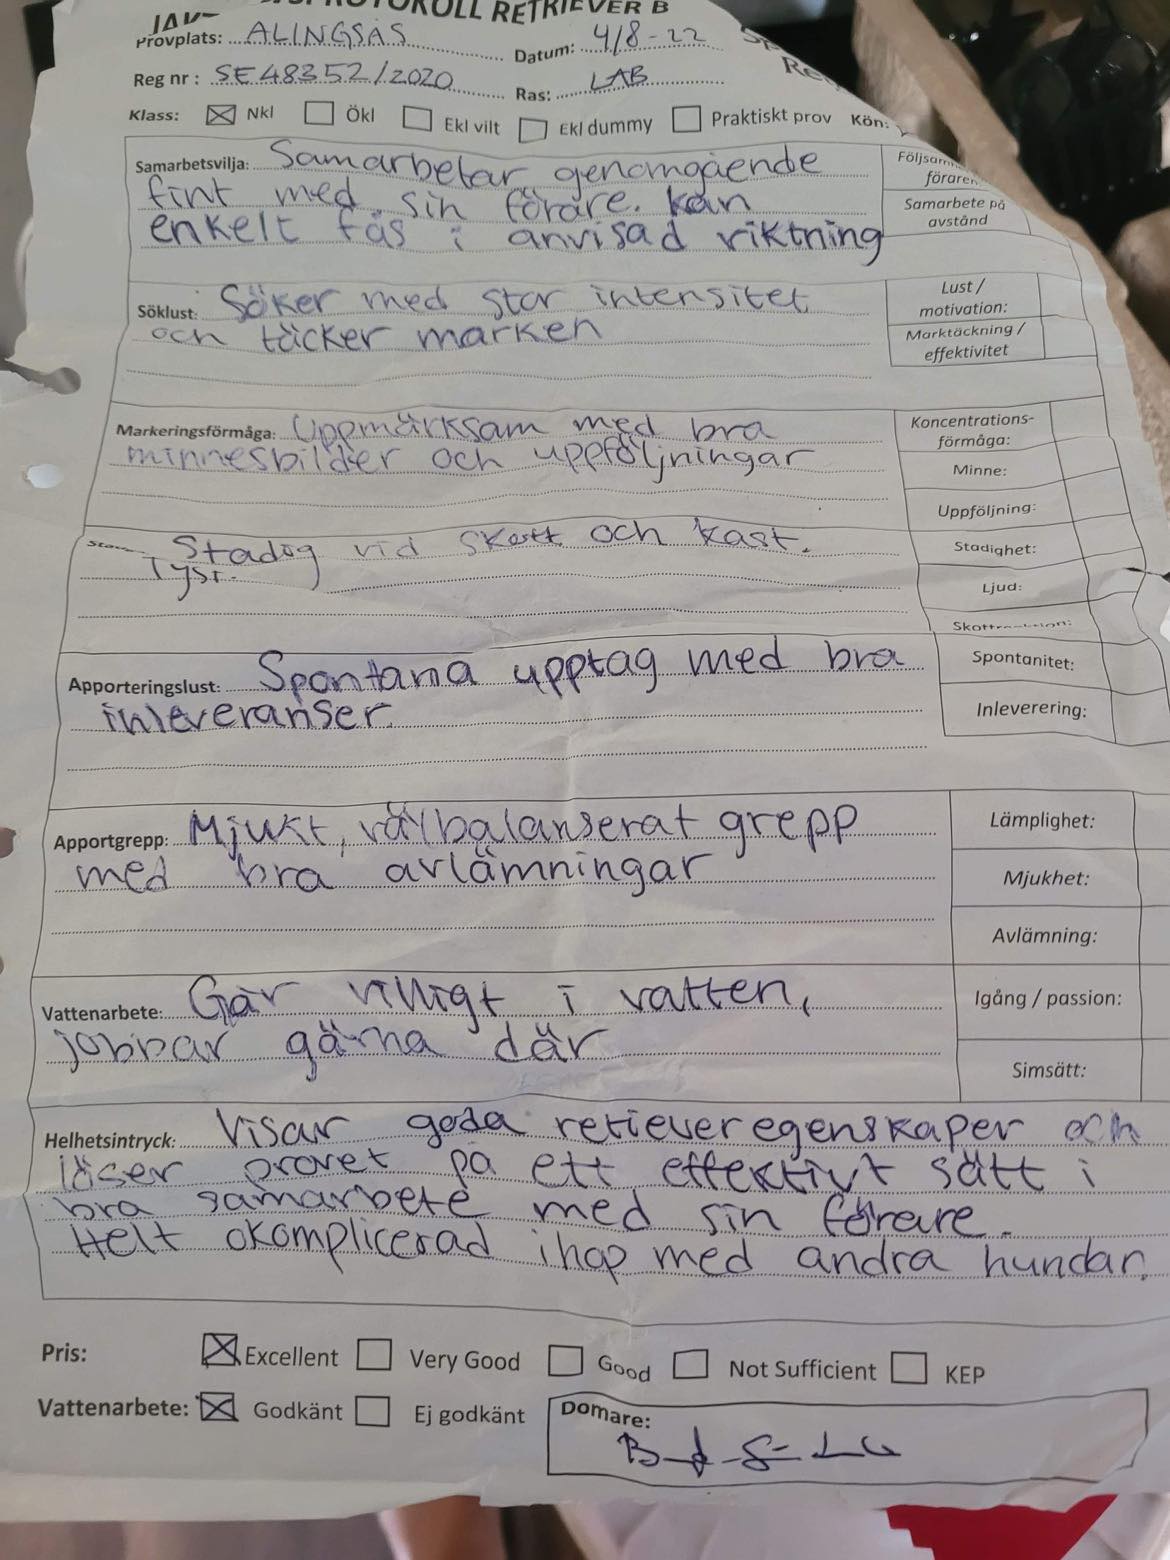 PROTOKOLL RETRIEVER B
Provplats: ALINGSÅS
Datum: 4/8-22
Reg nr: SE48352/2020
Ras: LAB
Klass: ☒ Nkl ☐ Ökl ☐ Ekl vilt ☐ Ekl dummy ☐ Praktiskt prov Kön:
Samarbetsvilja: Samarbetar genomgående
fint med sin förare. kan
enkelt fås i anvisad riktning
föraren
Samarbete på
avstånd
Söklust: Söker med stor intensitet
och täcker marken
Lust /
motivation:
Marktäckning /
effektivitet
Markeringsförmåga: Uppmärksam med bra
minnesbilder och uppföljningar
Koncentrations-
förmåga:
Minne:
Uppföljning:
Stadig vid skott och kast.
Tyst.
Stadighet:
Ljud:
Apporteringslust: Spontana upptag med bra
inleveranser.
Spontanitet:
Inleverering:
Apportgrepp: Mjukt, välbalanserat grepp
med bra avlämningar
Lämplighet:
Mjukhet:
Avlämning:
Vattenarbete: Går villigt i vatten,
jobbar gärna där
Igång / passion:
Simsätt:
Helhetsintryck: Visar goda retieveregenskaper och
löser provet på ett effektivt sätt i
bra samarbete med sin förare.
Helt okomplicerad ihop med andra hundar.
Pris: ☒ Excellent ☐ Very Good ☐ Good ☐ Not Sufficient ☐ KEP
Vattenarbete: ☒ Godkänt ☐ Ej godkänt
Domare: